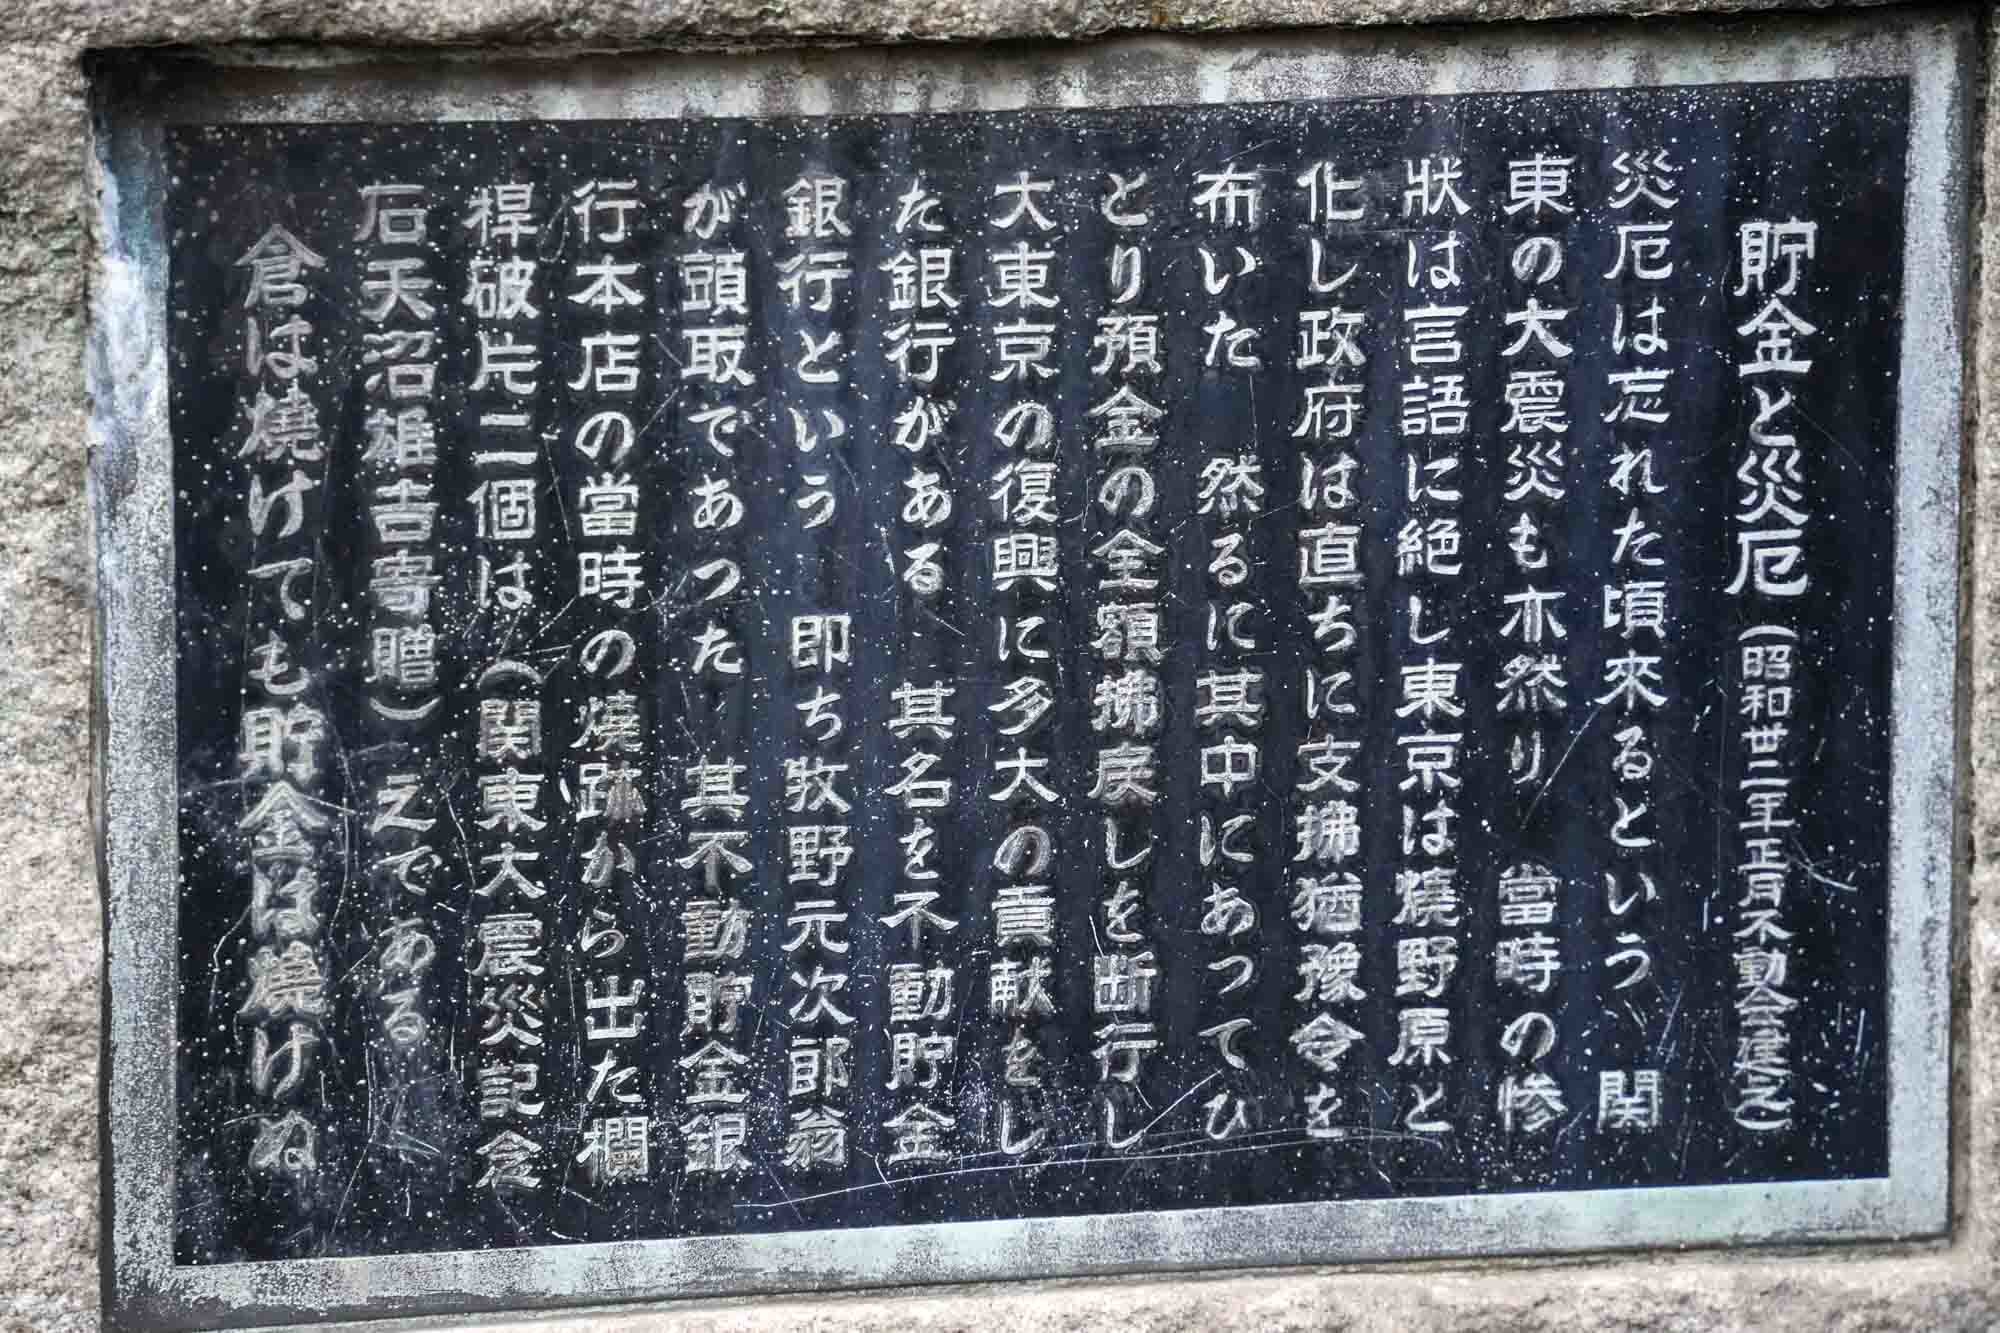 貯金と災厄(昭和丗二年正月不動会建之)
災厄は忘れた頃來るという 関
東の大震災も亦然り 當時の惨
狀は言語に絶し東京は燒野原と
化し政府は直ちに支拂猶豫令を
布いた 然るに其中にあってひ
とり預金の全額拂戻しを断行し
大東京の復興に多大の貢献をし
た銀行がある 其名を不動貯金
銀行という 即ち牧野元次郎翁
が頭取であった 其不動貯金銀
行本店の當時の燒跡から出た欄
桿破片二個は(関東大震災記念
石天沼雄吉寄贈)之である
倉は燒けても貯金は燒けぬ